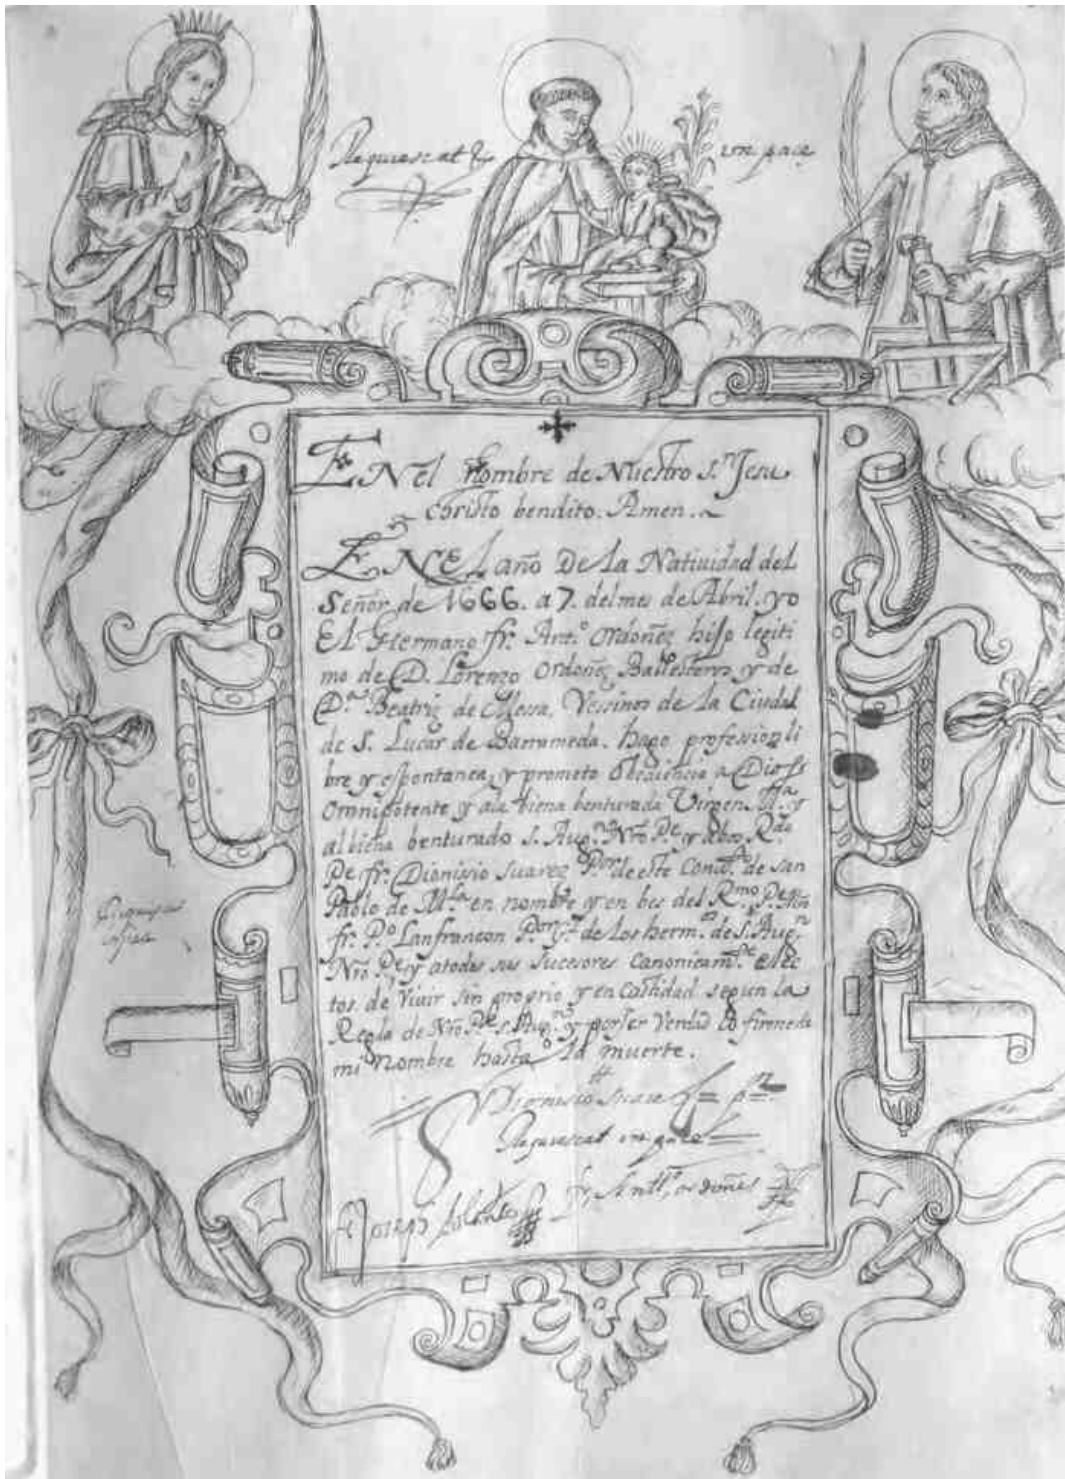 Requiescat &
in pace
En el Nombre de Nuestro S.r Jesu
christo bendito. Amen.
EN El año De la Natiuidad del
Señor de 1666. a 7. del mes de Abril. yo
El Hermano fr. Ant.º Ordoñez hijo legiti
mo de D. Lorenzo Ordoñez Ballesteros y de
D.ª Beatriz de Messa, Vezinos de la Ciudad
de S. Lucar de Barrameda. hago profession li
bre y espontanea, y prometo obediencia a Dios
Omnipotente y ala biena benturada Virgen M.ª y
al biena benturado S. Aug.no Nrõ P.e y
P.e fr. Dionisio Suarez P.or de este Conu.to de san
Pablo de en nombre y en bes del R.mo P.e
fr. P.º Lanfrancon P.or de los herm.os de S. Aug.n
Nrõ P.e y atodos sus sucesores Canonicam.te elec
tos de Viuir sin proprio y en Castidad segun la
Regla de Nrõ P.e S. Aug.no y por ser Verdad lo firme de
mi Nombre hasta la muerte.
Dionisio Suarez
Requiescat in pace
fr. Ant.º ordoñes
Requiescat
in pace